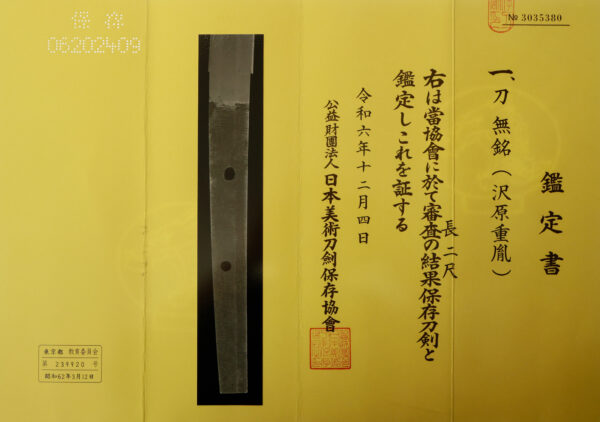 № 3035380
鑑定書
一、刀 無銘(沢原重胤)
長 二尺
右は當協會に於て審査の結果保存刀剣と
鑑定しこれを証する
令和六年十二月四日
公益財團法人 日本美術刀劍保存協會
保存
06202409
東京都 教育委員会
第 239920 号
昭和62年3月12日